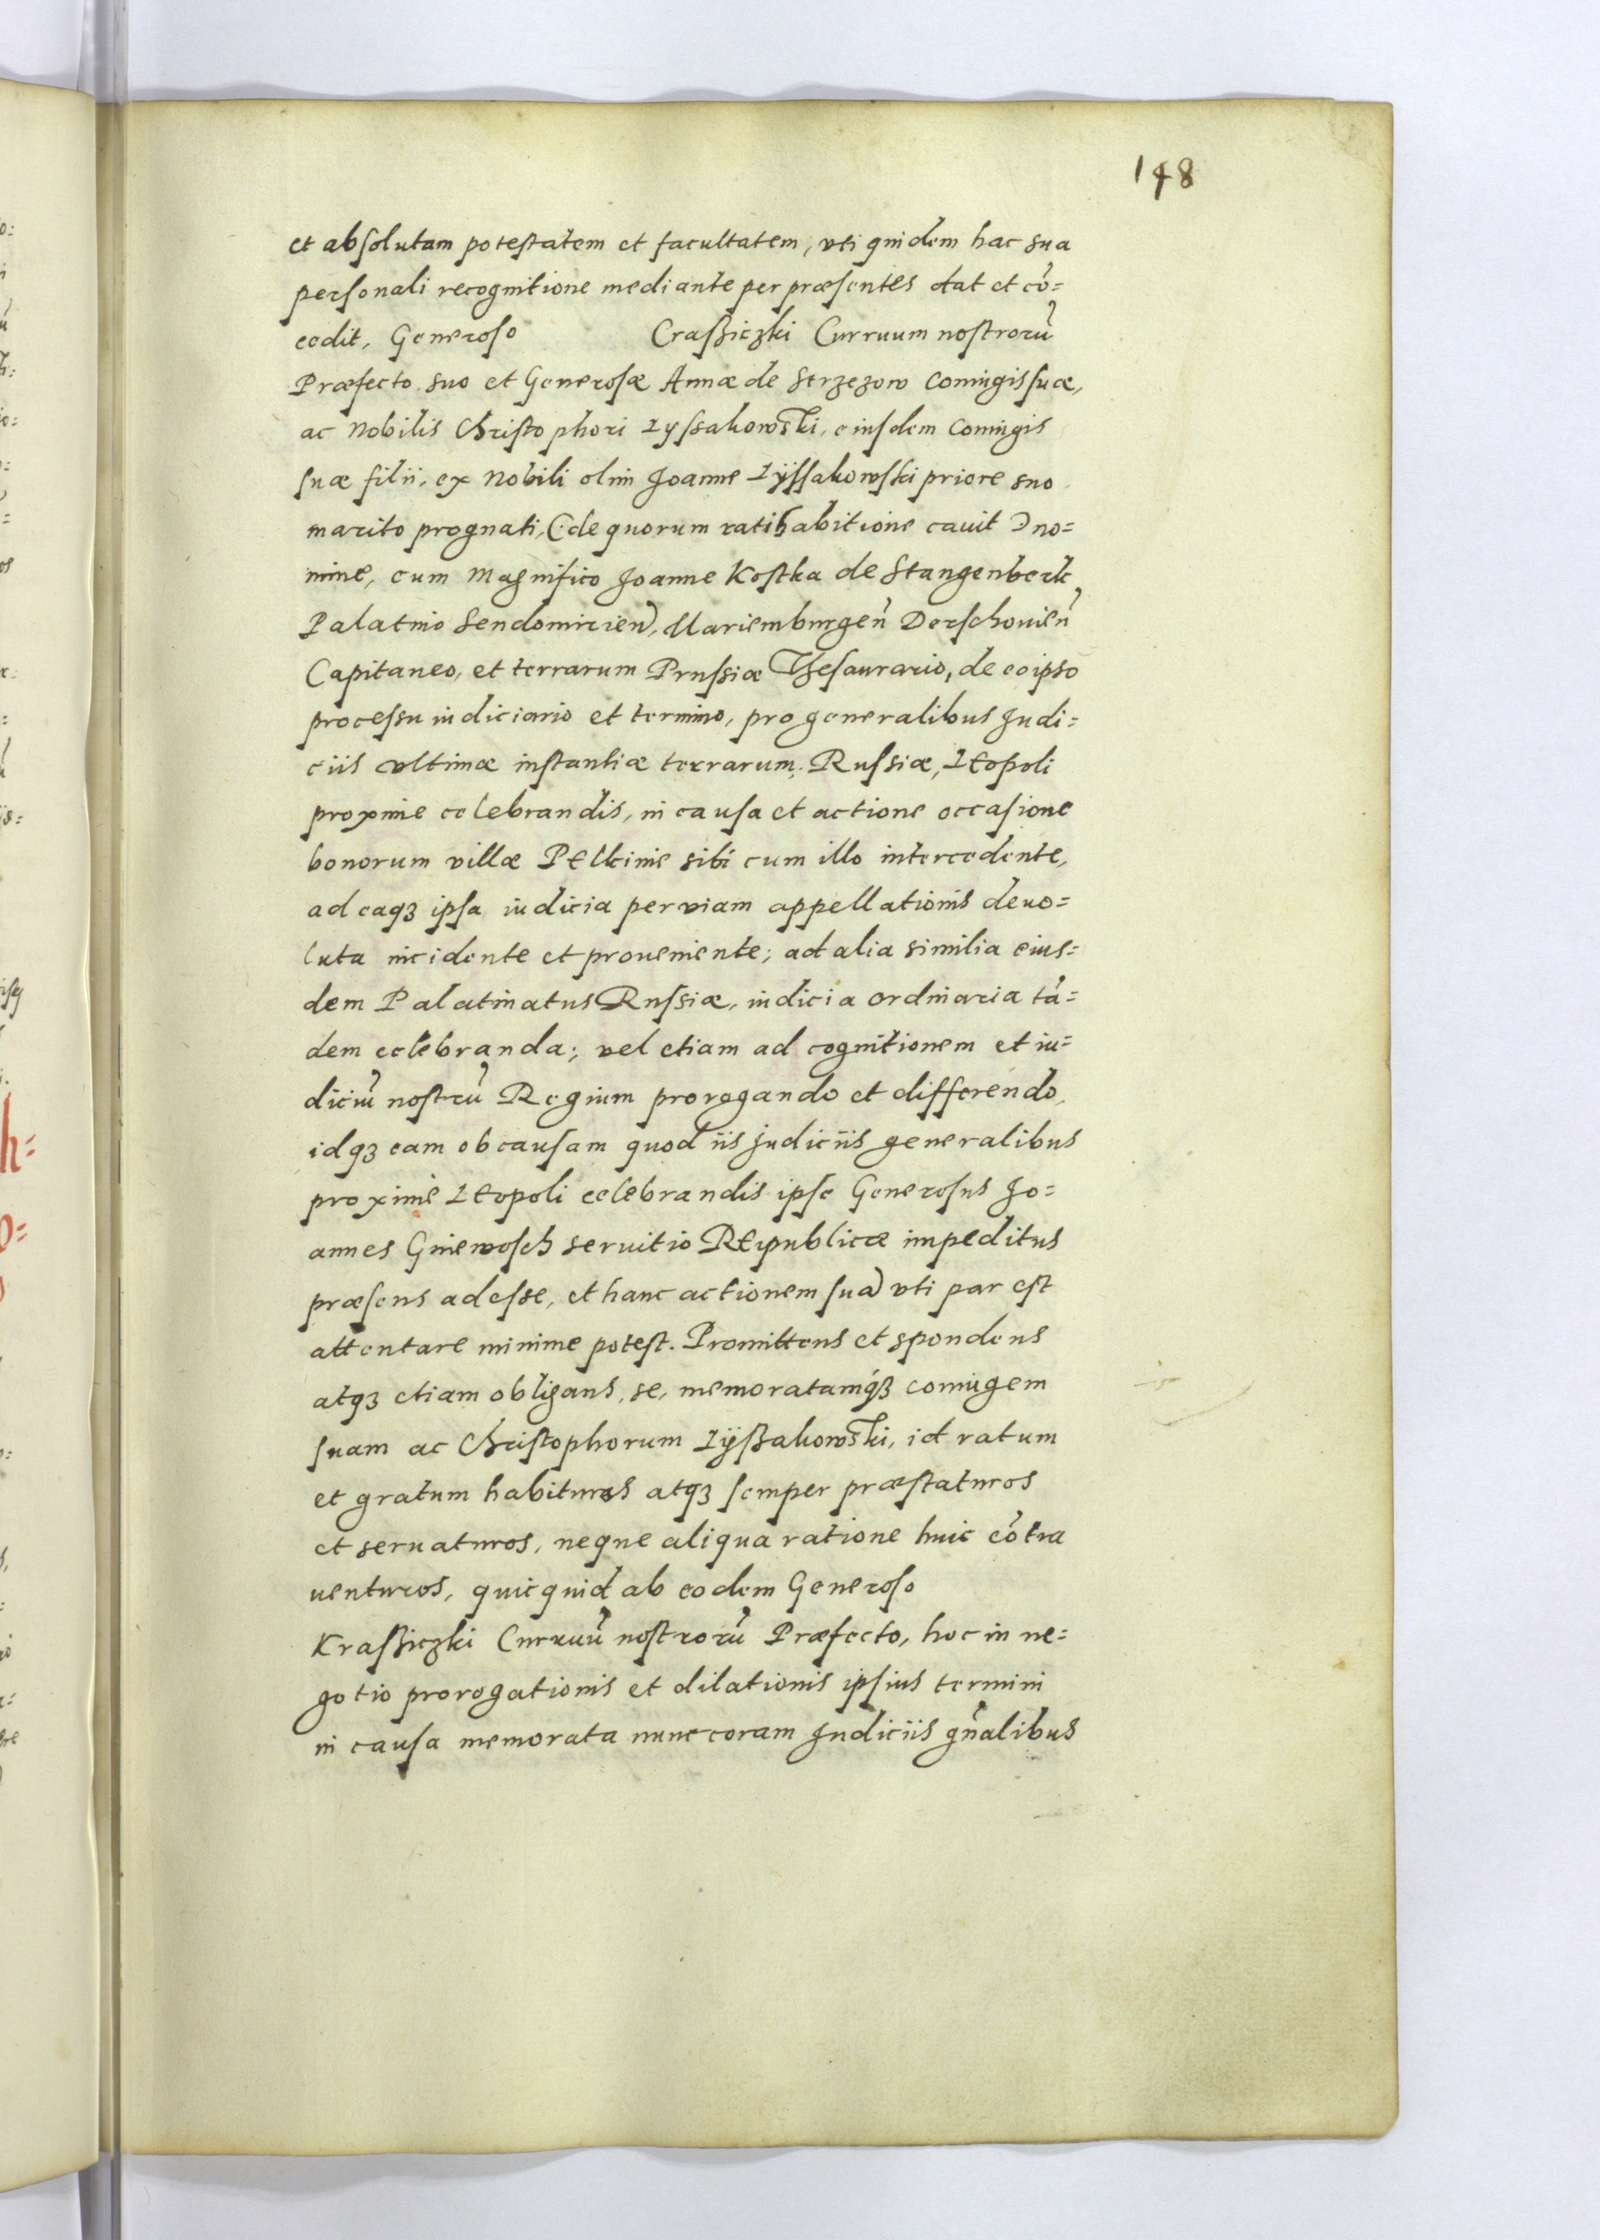 148
et absolutam potestatem et facultatem, vti quidem hac sua
personali recognitione mediante per præsentes dat et cō=
cedit, Generoso Craßiczki Curruum nostrorū
Præfecto suo et Generosæ Annæ de Strzezow Coniugis suæ,
ac Nobilis Christophori Lyssakowski, eiusdem Coniugis
suæ filii, ex Nobili olim Joanne Lÿssakowski priore suo
marito prognati, (de quorum ratihabitione cavit) no=
mine, cum Magnifico Joanne Kostka de Stangenberk
Palatino Sendomirien̄, Mariemburgen̄ Derschouien̄
Capitaneo, et terrarum Prussiæ Thesaurario, de eo ipso
processu iudiciario et termino, pro generalibus Judi=
ciis vltimæ instantiæ terrarum Russiæ, Leopoli
proxime celebrandis, in causa et actione occasione
bonorum villæ Pelkinie sibi cum illo intercedente,
ad eaqꝫ ipsa iudicia per viam appellationis deuo=
luta incidente et proueniente; ad alia similia eius=
dem Palatinatus Russiæ, iudicia ordinaria tā=
dem celebranda; vel etiam ad cognitionem et iu=
diciū nostrū Regium prorogando et differendo,
idqꝫ eam ob causam quod iis Judiciis generalibus
proxime Leopoli celebrandis ipse Generosus Jo=
annes Gniewosch seruitio Reipublicæ impeditus
præsens adesse, et hanc actionem suā vti par est
attentare minime potest. Promittens et spondens
atqꝫ etiam obligans, se, memoratamqꝫ coniugem
suam ac Christophorum Lÿßakowski, id ratum
et gratum habituros atqꝫ semper præstaturos
et seruaturos, neque aliqua ratione huic cōtra
uenturos, quicquid ab eodem Generoso
Kraßiczki Curruū nostrorū Præfecto, hoc in ne=
gotio prorogationis et dilationis ipsius termini
in causa memorata nunc coram Judiciis gn̄alibus